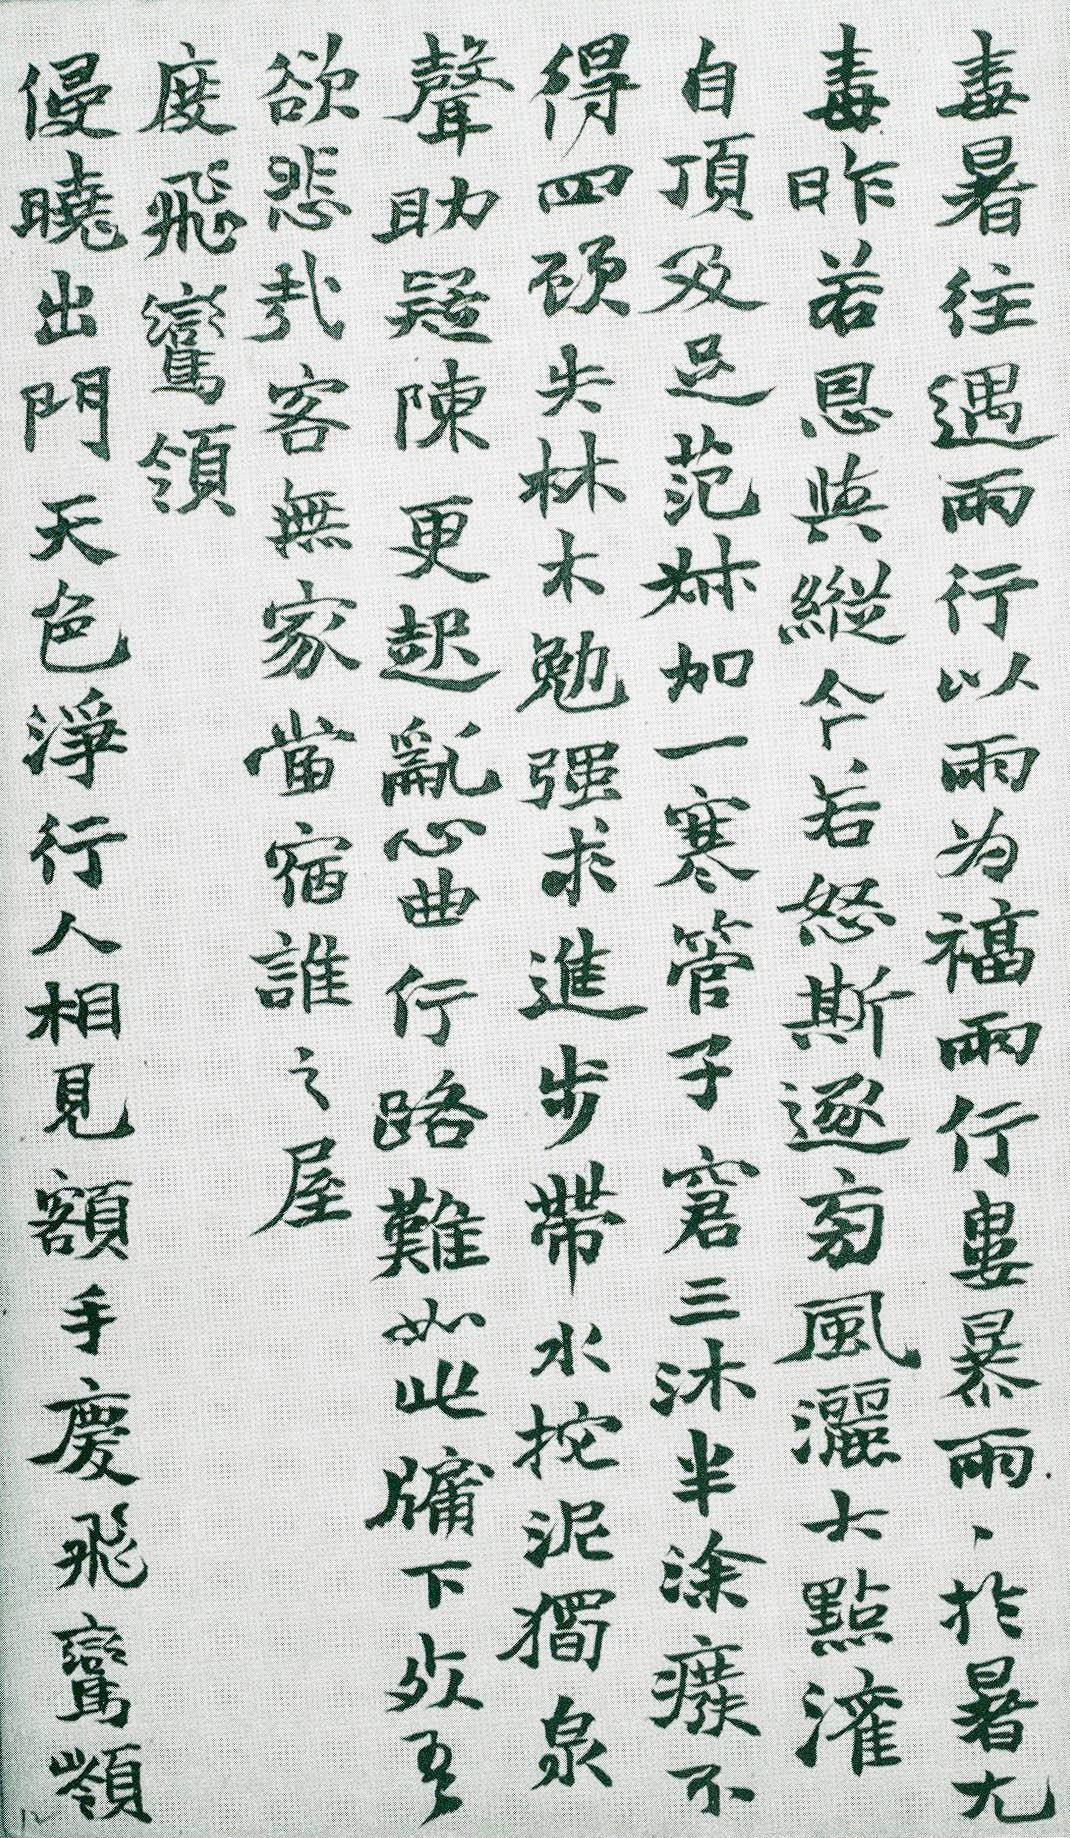 毒暑往遇雨行以雨为福雨行婁暴雨、於暑尤
毒昨若恩與縱今若怒斯逐匈風灑大點灌
自頂及足范烌加一寒管子窘三沐半涂癈不
得四顾失林木勉强求進步帶水拕泥獨泉
聲助疑陳更起亂心曲行路難如此牖下攷吾
欲悲哉客無家當宿誰之屋
度飛鸞領
侵曉出門天色淨行人相見額手慶飛鸞嶺